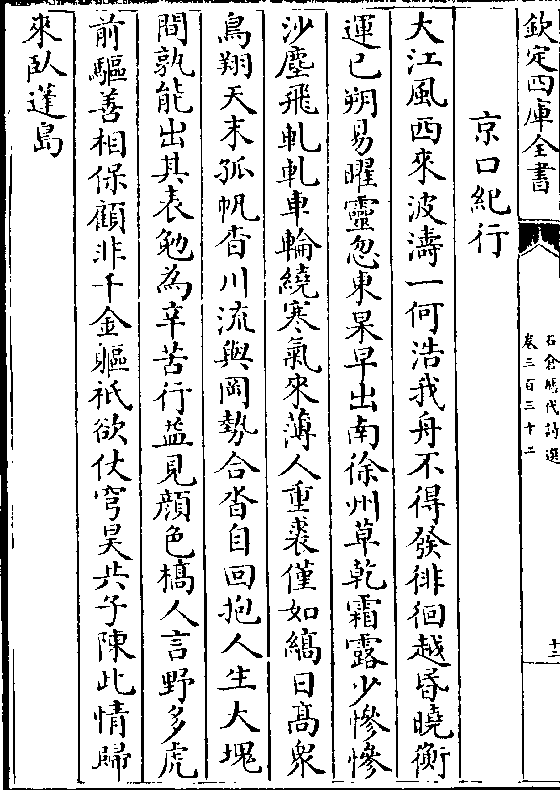 欽定四庫全書
石倉歷代詩選
卷三百三十二
十二
京口紀行
大江風西來波濤一何浩我舟不得發徘徊越昏曉衡
運已朔易曜靈忽東杲早出南徐州草乾霜露少慘慘
沙塵飛軋軋車輪繞寒氣來薄人重裘僅如縞日髙衆
鳥翔天末孤帆杳川流與岡勢合沓自回抱人生大塊
間孰能出其表勉為辛苦行益見顔色槁人言野多虎
前驅善相保顧非千金軀祇欲仗穹昊共子陳此情歸
來臥蓬島